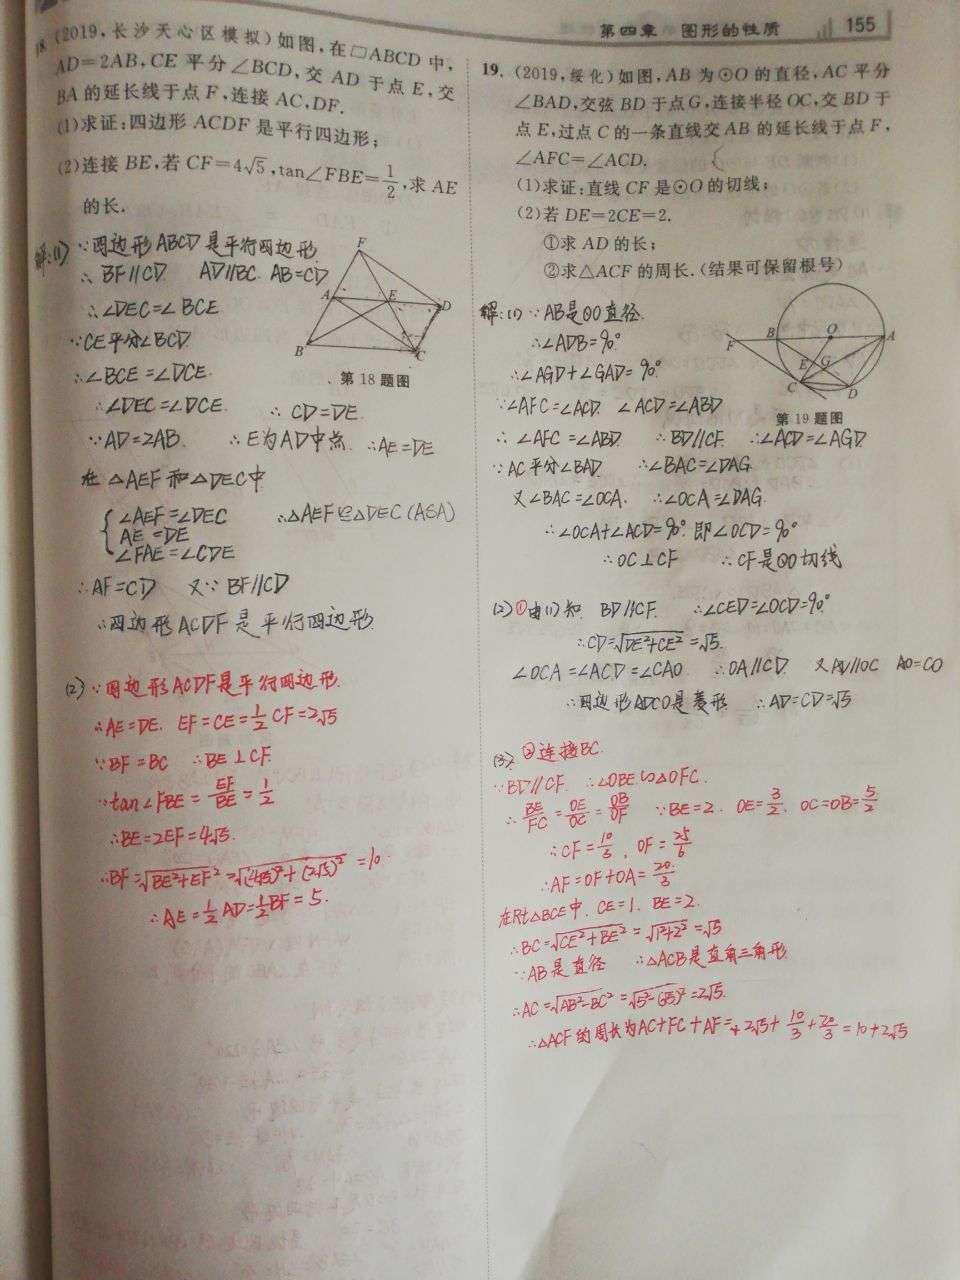 第四章 图形的性质 155
18. (2019,长沙天心区模拟)如图,在▱ABCD中,
AD=2AB,CE平分∠BCD,交AD于点E,交
BA的延长线于点F,连接AC,DF.
(1)求证:四边形ACDF是平行四边形;
(2)连接BE,若CF=4√5,tan∠FBE=1/2,求AE
的长.
解:(1) ∵四边形ABCD是平行四边形
∴ BF∥CD AD∥BC. AB=CD
∴∠DEC=∠BCE
∵CE平分∠BCD
∴∠BCE=∠DCE.
∴∠DEC=∠DCE. ∴ CD=DE.
∵AD=2AB. ∴E为AD中点 ∴AE=DE
在△AEF和△DEC中
∠AEF=∠DEC
AE=DE
∠FAE=∠CDE
∴△AEF≌△DEC(ASA)
∴AF=CD 又∵BF∥CD
∴四边形ACDF是平行四边形.
F
A E D
B C
第18题图
(2) ∵四边形ACDF是平行四边形.
∴AE=DE. EF=CE=1/2CF=2√5
∵BF=BC ∴BE⊥CF.
∵tan∠FBE=EF/BE=1/2
∴BE=2EF=4√5.
∴BF=√(BE²+EF²)=√((4√5)²+(2√5)²)=10.
∴AE=1/2AD=1/2BF=5.
19. (2019,绥化)如图,AB为⊙O的直径,AC平分
∠BAD,交弦BD于点G,连接半径OC,交BD于
点E,过点C的一条直线交AB的延长线于点F,
∠AFC=∠ACD.
(1)求证:直线CF是⊙O的切线;
(2)若DE=2CE=2.
①求AD的长;
②求△ACF的周长.(结果可保留根号)
解:(1) ∵AB是⊙O直径.
∴∠ADB=90°
∴∠AGD+∠GAD=90°
∵∠AFC=∠ACD. ∠ACD=∠ABD
∴ ∠AFC=∠ABD. ∴BD∥CF. ∴∠ACD=∠AGD.
∵AC平分∠BAD. ∴∠BAC=∠DAG
又∠BAC=∠OCA. ∴∠OCA=∠DAG.
∴∠OCA+∠ACD=90° 即∠OCD=90°
∴OC⊥CF ∴CF是⊙O切线
F B O A
E G
C D
第19题图
(2) ①由(1)知 BD∥CF. ∴∠CED=∠OCD=90°
∴CD=√(DE²+CE²)=√5.
∠OCA=∠ACD=∠CAO ∴OA∥CD 又AD∥OC AO=CO
∴四边形ADCO是菱形 ∴AD=CD=√5
(3). ②连接BC.
∵BD∥CF. ∴△OBE∽△OFC.
∴BE/FC=OE/OC=OB/OF ∵BE=2. OE=3/2. OC=OB=5/2
∴CF=10/3, OF=25/6
∴AF=OF+OA=20/3
在Rt△BCE中. CE=1. BE=2.
∴BC=√(CE²+BE²)=√(1²+2²)=√5
∵AB是直径 ∴△ACB是直角三角形.
∴AC=√(AB²-BC²)=√(5²-(√5)²)=2√5.
∴△ACF的周长为AC+FC+AF=2√5+10/3+20/3=10+2√5